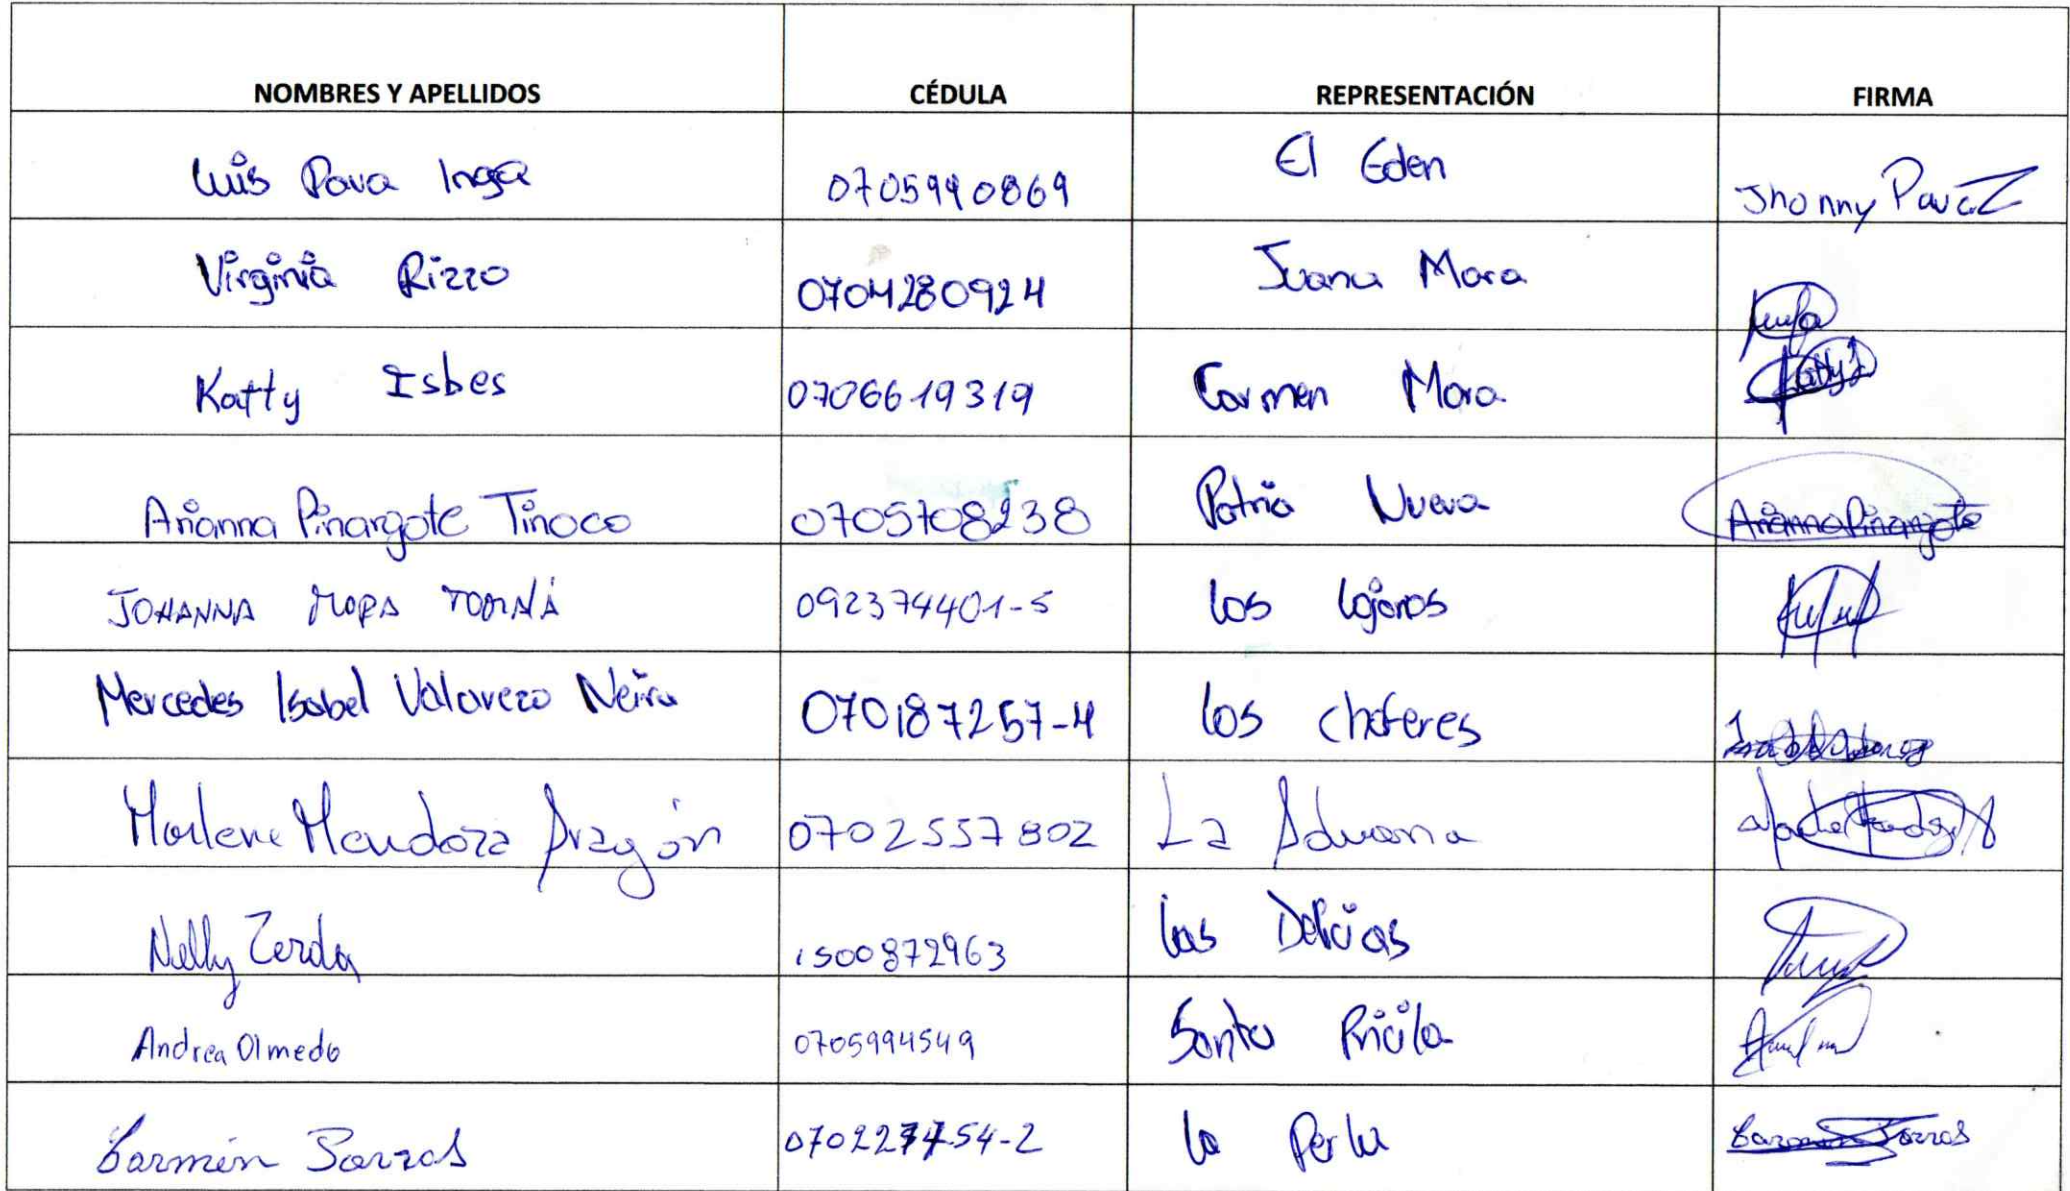 NOMBRES Y APELLIDOS CÉDULA REPRESENTACIÓN FIRMA
Luis Pava Inga 0705990869 El Eden Jhonny Pava Z
Virginia Rizzo 0704280924 Juana Mora
Katty Isbes 0706619319 Carmen Mora Katty I
Arianna Pinargote Tinoco 0705708238 Patria Nueva Arianna Pinargote
JOHANNA MORA 092374401-5 los lojanos
Mercedes Isabel Valarezo Neira 070187257-4 los choferes
Marlene Mendoza Aragón 0702557802 La Aduana
Nelly Zerda 1500872963 las Delicias
Andrea Olmedo 0705994549 Santa Pricila
Carmen Porras la Perla Carmen Porras